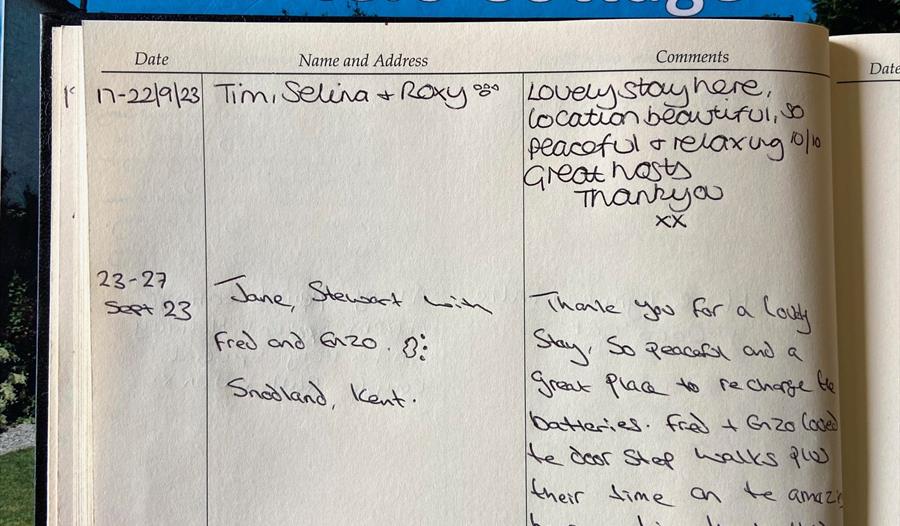 Date Name and Address Comments Date
17-22/9/23 Tim, Selina + Roxy
Lovely stay here,
location beautiful, so
peaceful + relaxing 10/10
Great hosts
Thankyou
xx
23-27
Sept 23
Jane, Stewart with
Fred and Enzo.
Snodland, Kent.
Thank you for a lovely
Stay, So peaceful and a
great place to recharge the
batteries. Fred + Enzo loved
te door Step walks plus
their time on te amazi